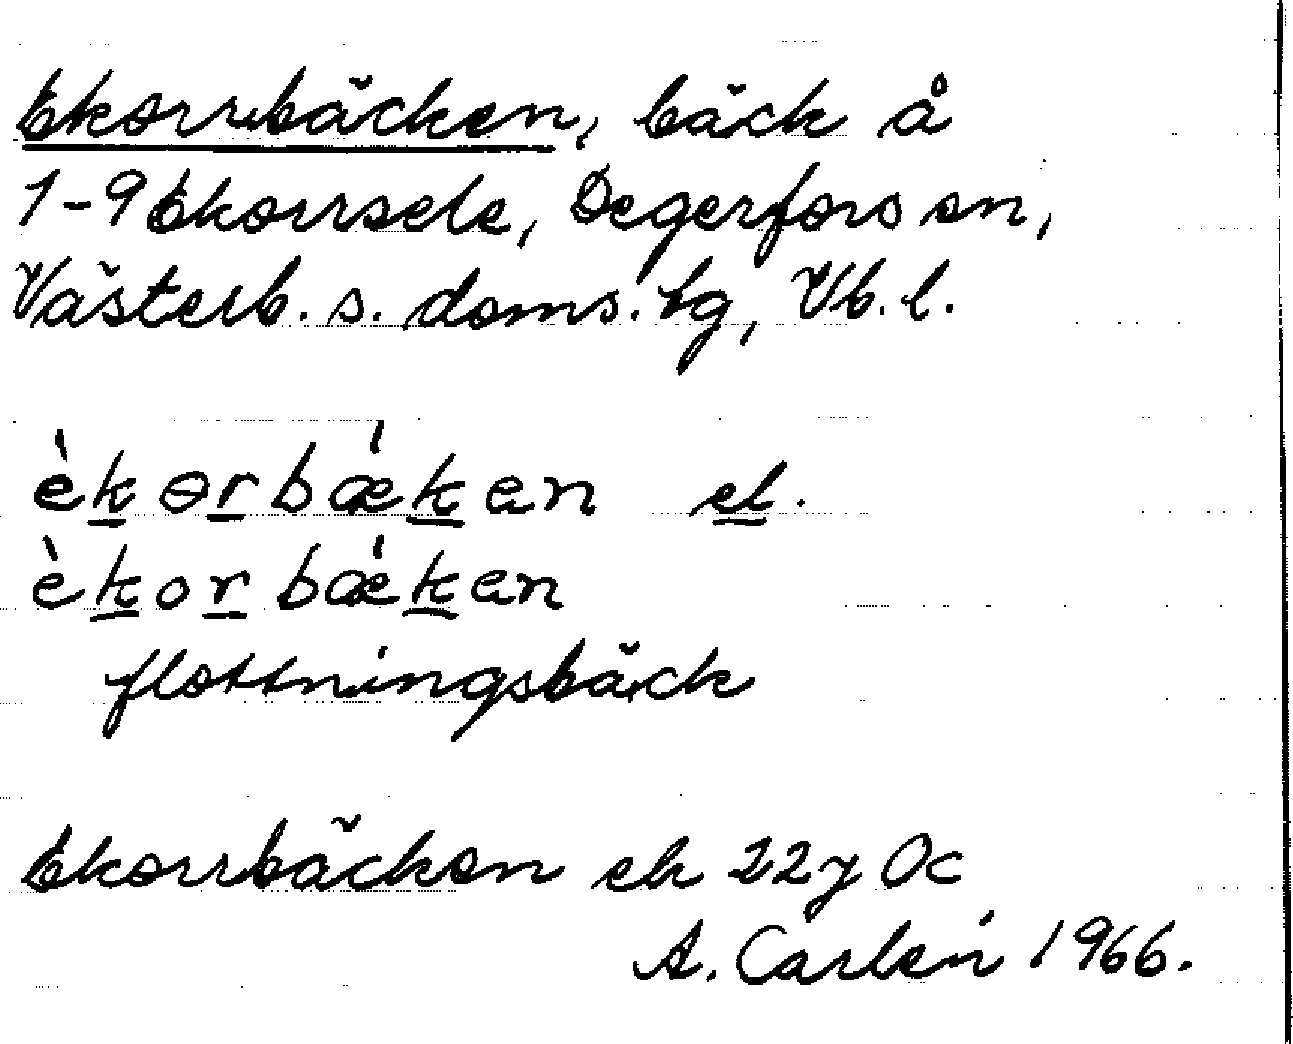 Ekorrbäcken, bäck å
1-9 Ekorrsele, Degerfors sn,
Västerb. s. doms. tg, Vb. l.
èkɵrbǽkan el.
èkorbǽkan
flottningsbäck
Ekorrbäcken ek 22y Oc
A. Carlén 1966.